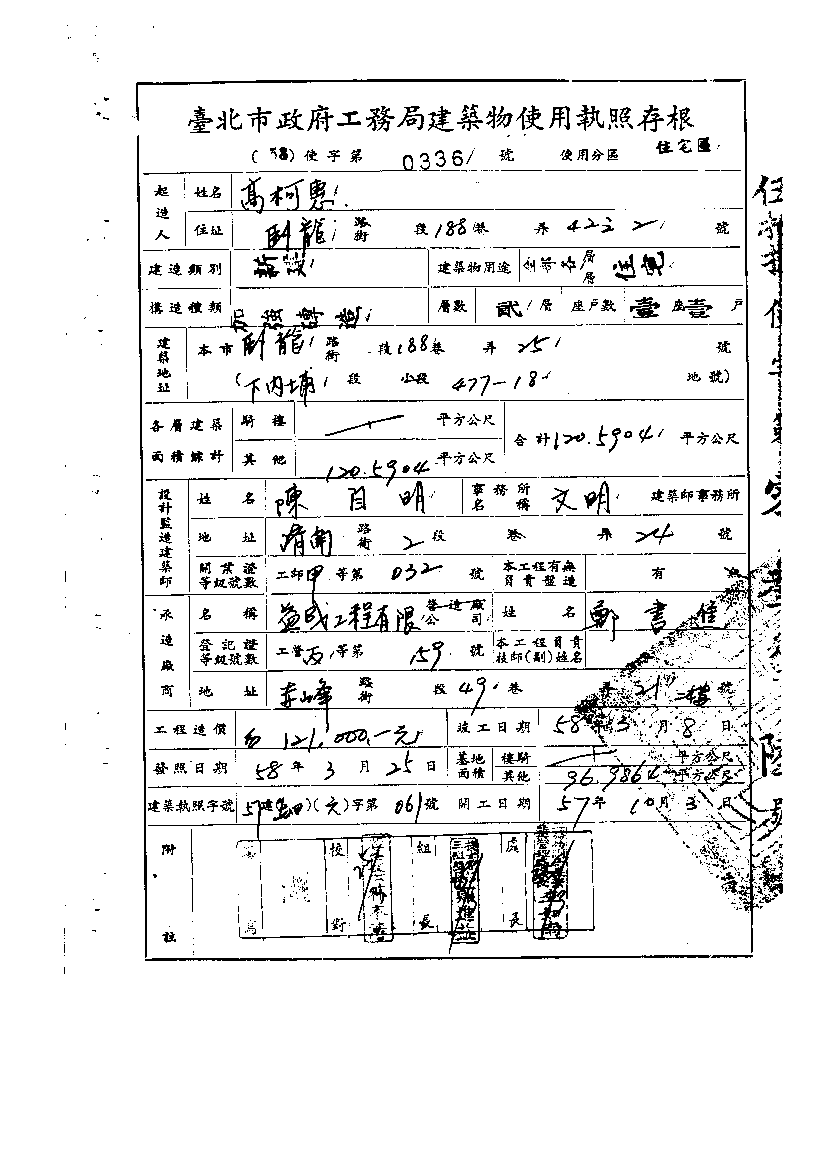 臺北市政府工務局建築物使用執照存根
(58)使字第 0336 號 使用分區 住宅區
起造人 姓名 高柯惠
住址 臥龍 路街 段188巷 弄 號
建造類別 新設 建築物用途 層層 住宅
構造種類 加強磚造 層數 貳層 座戶數 壹座壹戶
建築地址 本市 臥龍 路街 段188巷 弄 25 號
(下內埔 段 小段 477-18 地號)
各層建築面積總計 騎樓 平方公尺 合計120.5904 平方公尺
其他 120.5904 平方公尺
設計監造建築師 姓名 陳 明 事務所名稱 文明 建築師事務所
地址 濟南 路街 2 段 巷 弄 24 號
開業證等級號數 工師甲等第 032 號 本工程有無負責監造 有
承造廠商 名稱 益成工程有限 營造廠公司 姓名 鄭書
登記證等級號數 工營丙等第 159 號 本工程負責技師(副)姓名
地址 赤峰 路街 段 49 巷 弄 21 二樓 號
工程造價 121,000.-元 竣工日期 58年3月8日
發照日期 58年3月25日 基地面積 樓騎 平方公尺
其他 96.9864 平方公尺
建築執照字號 57建 ( )字第 061號 開工日期 57年10月3日
附註 校對 組長 處長